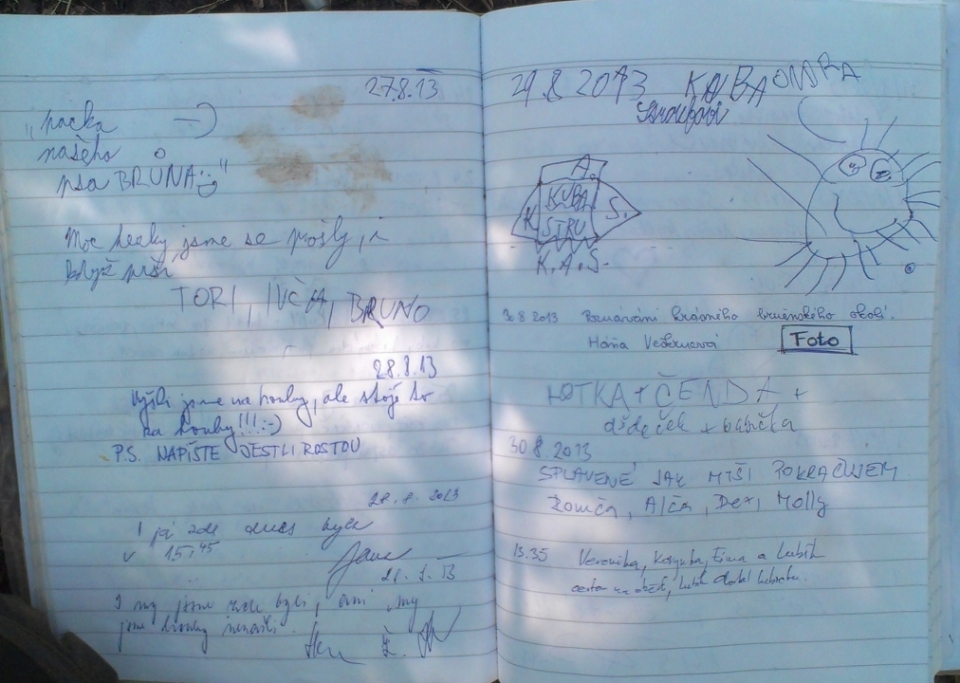 27.8.13
„packa :-)
našeho
psa BRUNA"
Moc hezky jsme se prošly, i
když prší
TORI, IVČA, BRUNO
28.8.13
Vyšli jsme na houby, ale stojí to
za houby!!! :-)
P.S. NAPIŠTE JESTLI ROSTOU
28.8.2013
I já zde dnes byla
v 15,45
Jana
28.8.13
I my jsme zde byli, ani my
jsme houby
29.8 2013 KUBA ONDRA
A.
K KUBA S.
STRU
K.A.S.
30.8 2013 krásného brněnského okolí.
Foto
LOTKA + ČENDA +
dědeček + babička
30 8. 2013
SPLAVENÉ JAK MYŠI POKRAČUJEM
Romča, Alča, Dex, Molly
13.35 Veronika, a Luběk